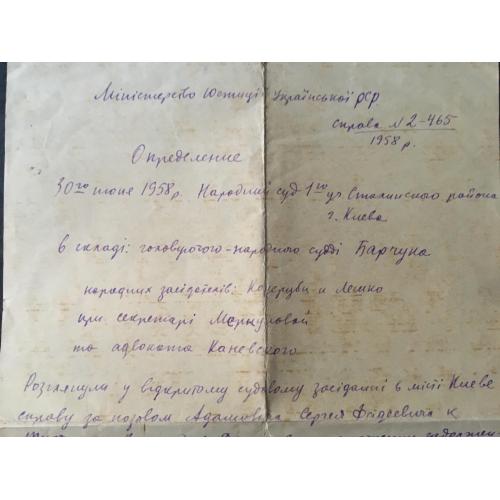 Міністерство Юстиції Української РСР
справа N 2-465
1958 р.
Определение
30го июня 1958 р. Народний суд 1го уч. Сталинского района
г. Киева
в складі: головуючого-народного судді Барчука
народних засідателів: и Лешко
при секретарі
та адвоката Каневского
Розглянула у відкритому судовому засіданні в місті Киеве
справу за позовом Адамовича Сергея к